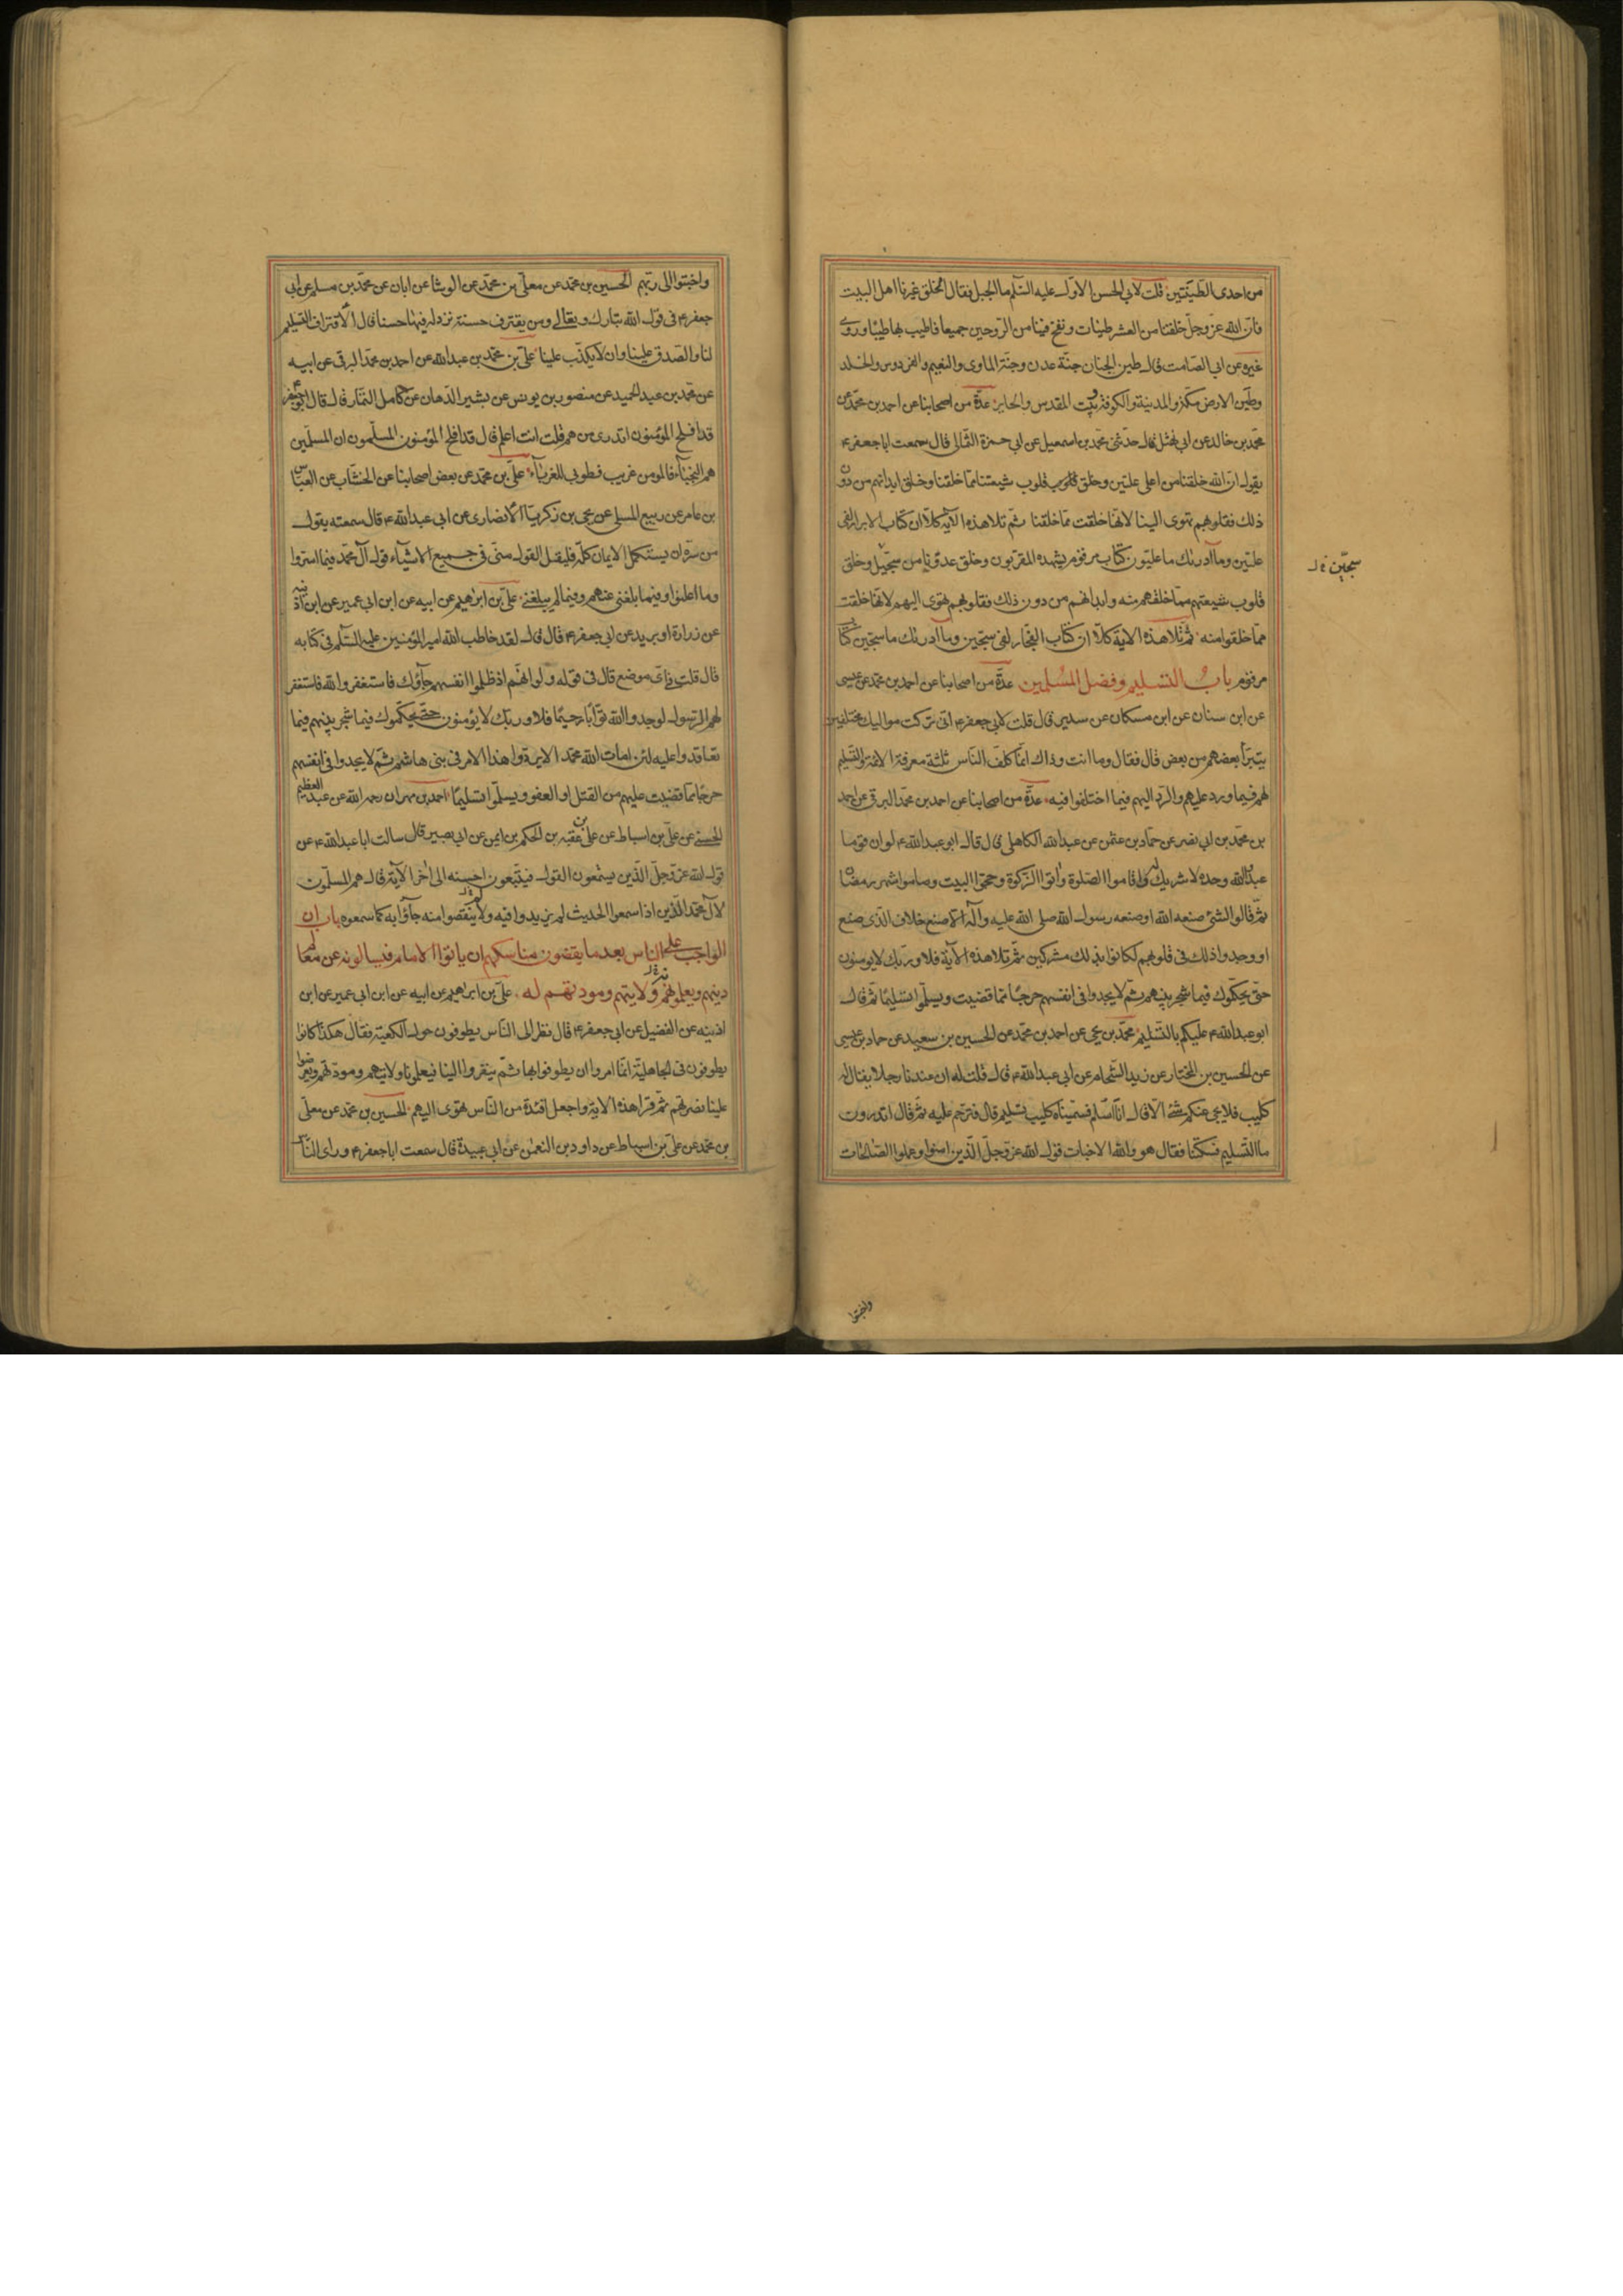 من احدى الطينتين قلت لابي الحسن الاول عليه السلم ما الجبل فقال الخلق غيرنا اهل البيت
فان الله عز وجل خلقنا من العشر طينات ونفخ فينا من الروحين جميعا فاطيب بها طيبا وروى
غيره عن ابي الصامت قال طين الجنان جنة عدن وجنة الماوى والنعيم والفردوس والخلد
وطين الارض مكة والمدينة والكوفة وبيت المقدس والحاير عدة من اصحابنا عن احمد بن محمد عن
محمد بن خالد عن ابي نهشل قال حدثني محمد بن اسمعيل عن ابي حمزة الثمالي قال سمعت ابا جعفر ع
يقول ان الله خلقنا من اعلى عليين وخلق قلوب شيعتنا مما خلقنا وخلق ابدانهم من دون
ذلك فقلوبهم تهوى الينا لانها خلقت مما خلقنا ثم تلا هذه الاية كلا ان كتاب الابرار لفي
عليين وما ادريك ما عليون كتاب مرقوم يشهده المقربون وخلق عدونا من سجيل وخلق
سجين
قلوب شيعتهم مما خلقهم منه وابدانهم من دون ذلك فقلوبهم تهوى اليهم لانها خلقت
مما خلقوا منه ثم تلا هذه الاية كلا ان كتاب الفجار لفي سجين وما ادريك ما سجين كتاب
مرقوم باب التسليم وفضل المسلمين عدة من اصحابنا عن احمد بن محمد عن عيسى
عن ابن سنان عن ابن مسكان عن سدير قال قلت لابي جعفر ع اني تركت مواليك مختلفين
يتبرأ بعضهم من بعض قال فقال وما انت وذاك انما كلف الناس ثلثة معرفة الائمة والتسليم
لهم فيما ورد عليهم والرد اليهم فيما اختلفوا فيه عدة من اصحابنا عن احمد بن محمد البرقي عن احمد
بن محمد بن ابي نصر عن حماد بن عثمن عن عبد الله الكاهلي قال قال ابو عبد الله ع لو ان قوما
عبدوا الله وحده لا شريك له واقاموا الصلوة واتوا الزكوة وحجوا البيت وصاموا شهر رمضان
ثم قالوا لشئ صنعه الله او صنعه رسول الله صلى الله عليه وآله الا صنع خلاف الذي صنع
او وجدوا ذلك في قلوبهم لكانوا بذلك مشركين ثم تلا هذه الآية فلا وربك لا يؤمنون
حتى يحكموك فيما شجر بينهم ثم لا يجدوا في انفسهم حرجا مما قضيت ويسلموا تسليما ثم قال
ابو عبد الله ع عليكم بالتسليم محمد بن يحيى عن احمد بن محمد عن الحسين بن سعيد عن حماد بن عيسى
عن الحسين بن المختار عن زيد الشحام عن ابي عبد الله ع قال قلت له ان عندنا رجلا يقال له
كليب فلا يجئ عنكم شئ الا قال انا اسلم فسميناه كليب تسليم قال فترحم عليه ثم قال اتدرون
ما التسليم فسكتنا فقال هو والله الاخبات قول الله عز وجل الذين امنوا وعملوا الصالحات
واخبتوا
واخبتوا الى ربهم الحسين بن محمد عن معلى بن محمد عن الوشا عن ابان عن محمد بن مسلم عن ابي
جعفر ع في قول الله تبارك وتعالى ومن يقترف حسنة نزد له فيها حسنا قال الاقتراف التسليم
لنا والصدق علينا وان لا يكذب علينا علي بن محمد بن عبد الله عن احمد بن محمد البرقي عن ابيه
عن محمد بن عبد الحميد عن منصور بن يونس عن بشير الدهان عن كامل التمار قال قال ابو جعفر ع
قد افلح المؤمنون اتدري من هم قلت انت اعلم قال قد افلح المؤمنون المسلمون ان المسلمين
هم النجباء فالمومن غريب فطوبى للغرباء علي بن محمد عن بعض اصحابنا عن الخشاب عن العباس
بن عامر عن ربيع المسلي عن يحيى بن زكريا الانصاري عن ابي عبد الله ع قال سمعته يقول
من سره ان يستكمل الايمان كله فليقل القول مني في جميع الاشياء قول آل محمد فيما اسروا
وما اعلنوا وفيما بلغني عنهم وفيما لم يبلغني علي بن ابرهيم عن ابيه عن ابن ابي عمير عن ابن اذينه
عن زرارة او بريد عن ابي جعفر ع قال قال لقد خاطب الله امير المؤمنين عليه السلم في كتابه
قال قلت في اي موضع قال في قوله ولو انهم اذ ظلموا انفسهم جاؤك فاستغفروا الله فاستغفر
لهم الرسول لوجدوا الله توابا رحيما فلا وربك لا يؤمنون حتى يحكموك فيما شجر بينهم فيما
تعاقدوا عليه لئن امات الله محمدا لا يردوا هذا الامر في بني هاشم ثم لا يجدوا في انفسهم
حرجا مما قضيت عليهم من القتل او العفو ويسلموا تسليما احمد بن مهران رحمه الله عن عبد العظيم
الحسني عن علي بن اسباط عن علي بن عقبه بن الحكم بن ايمن عن ابي بصير قال سالت ابا عبد الله ع عن
قول الله عز وجل الذين يستمعون القول فيتبعون احسنه الى اخر الآية قال هم المسلمون
لآل محمد الذين اذا سمعوا الحديث لم يزيدوا فيه ولم ينقصوا منه جاؤا به كما سمعوه باب ان
الواجب على الناس بعد ما يقضون مناسكهم ان ياتوا الامام فيسالونه عن معالم
دينهم ويعلمونهم ولايتهم ومودتهم له علي بن ابراهيم عن ابيه عن ابن ابي عمير عن ابن
اذينه عن الفضيل عن ابي جعفر ع قال نظر الى الناس يطوفون حول الكعبة فقال هكذا كانوا
يطوفون في الجاهلية انما امروا ان يطوفوا بها ثم ينفروا الينا فيعلمونا ولايتهم ومودتهم ويعرضوا
علينا نصرتهم ثم قرا هذه الاية واجعل افئدة من الناس تهوى اليهم الحسين بن محمد عن معلى
بن محمد عن علي بن اسباط عن داود بن النعمن عن ابي عبيدة قال سمعت ابا جعفر ع وراى الناس